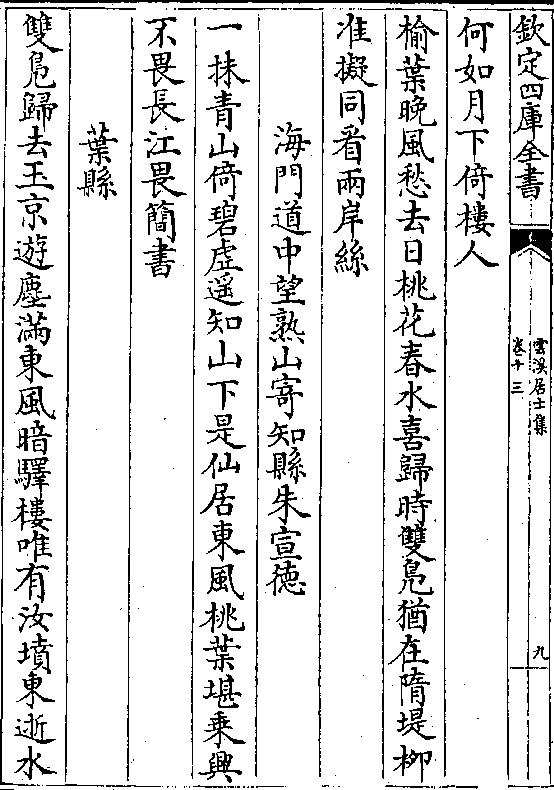 欽定四庫全書
雲溪居士集
卷十三
九
何如月下倚樓人
榆葉晚風愁去日桃花春水喜歸時雙鳧猶在隋堤柳
准擬同看兩岸絲
海門道中望熟山寄知縣朱宣德
一抹青山倚碧虛遥知山下是仙居東風桃葉堪乗興
不畏長江畏簡書
葉縣
雙鳧歸去玉京遊塵滿東風暗驛樓唯有汝墳東逝水